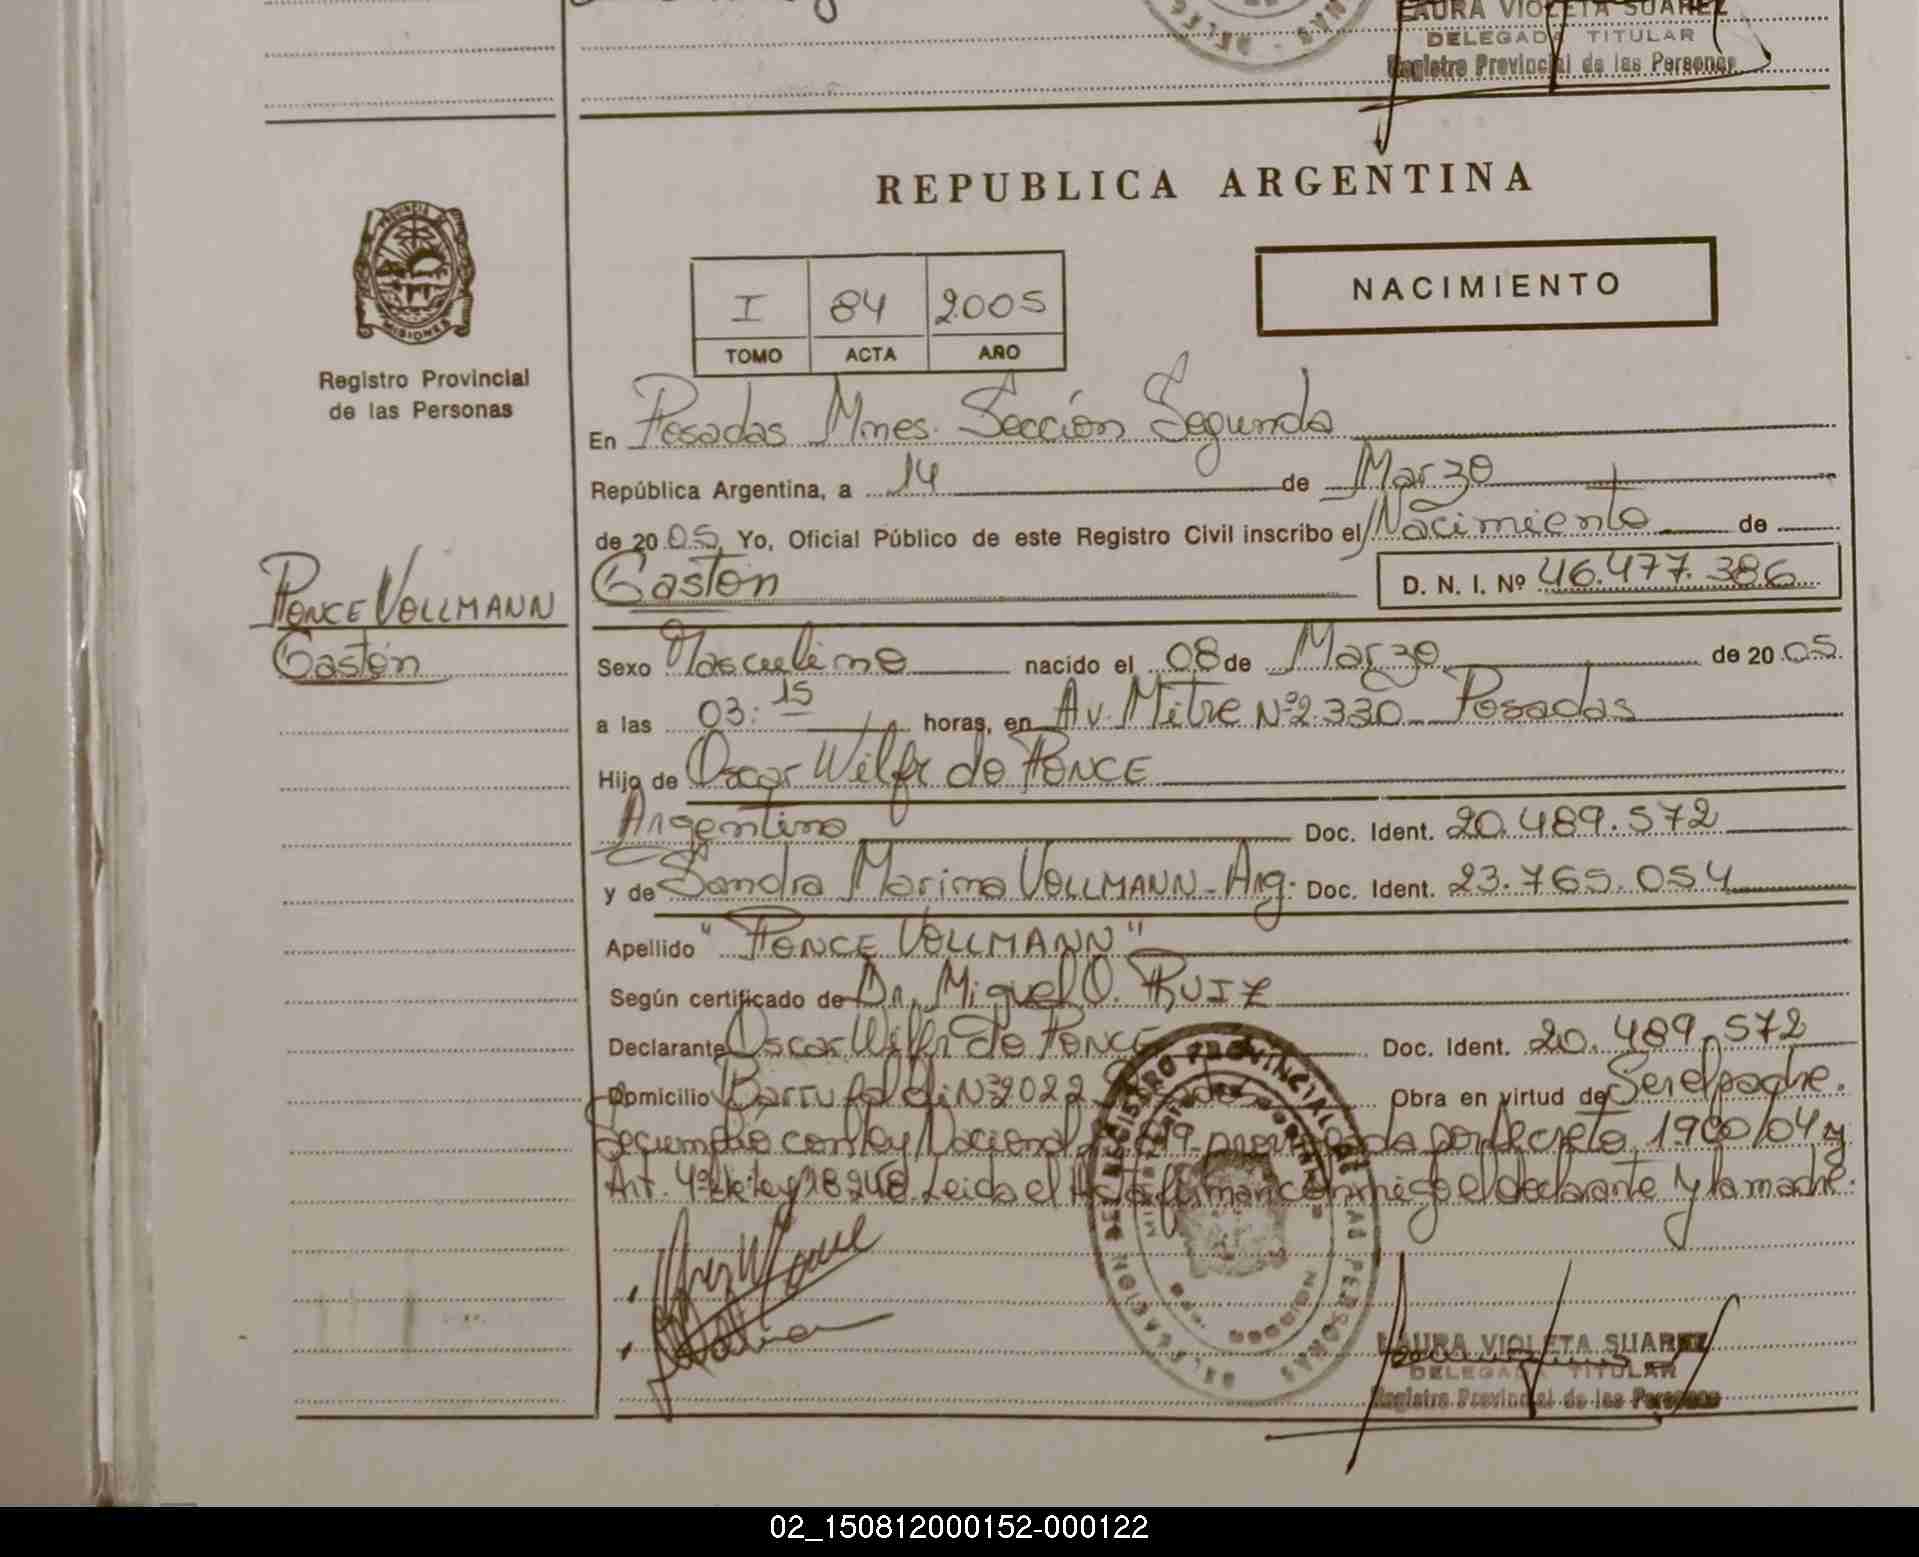 LAURA VIOLETA SUAREZ
DELEGADA TITULAR
Registro Provincial de las Personas
REPUBLICA ARGENTINA
PROVINCIA DE
MISIONES
Registro Provincial
de las Personas
I 84 2005
TOMO ACTA AÑO
NACIMIENTO
En Posadas Mnes. Sección Segunda
República Argentina, a 14 de Marzo
de 2005 Yo, Oficial Público de este Registro Civil inscribo el Nacimiento de
PONCE VOLLMANN
Gastón
Gastón D. N. I. Nº 46.477.386
Sexo Masculino nacido el 08 de Marzo de 2005
a las 03:15 horas, en Av. Mitre Nº 2.330 Posadas
Hijo de Oscar Wilfrido PONCE
Argentino Doc. Ident. 20.489.572
y de Sandra Marina VOLLMANN - Arg. Doc. Ident. 23.765.054
Apellido "PONCE VOLLMANN"
Según certificado de Dr. Miguel O. RUIZ
Declarante Oscar Wilfrido PONCE Doc. Ident. 20.489.572
Domicilio Nº 2022 Obra en virtud de Ser el padre.
Se cumplió con Ley Nacional por Decreto 1.900/04 y
Art. 4º de Ley 18248. Leida el Acta firman conmigo el declarante y la madre.
REGISTRO PROVINCIAL DE LAS PERSONAS
DELEGACION
LAURA VIOLETA SUAREZ
DELEGADA TITULAR
Registro Provincial de las Personas
02_150812000152-000122